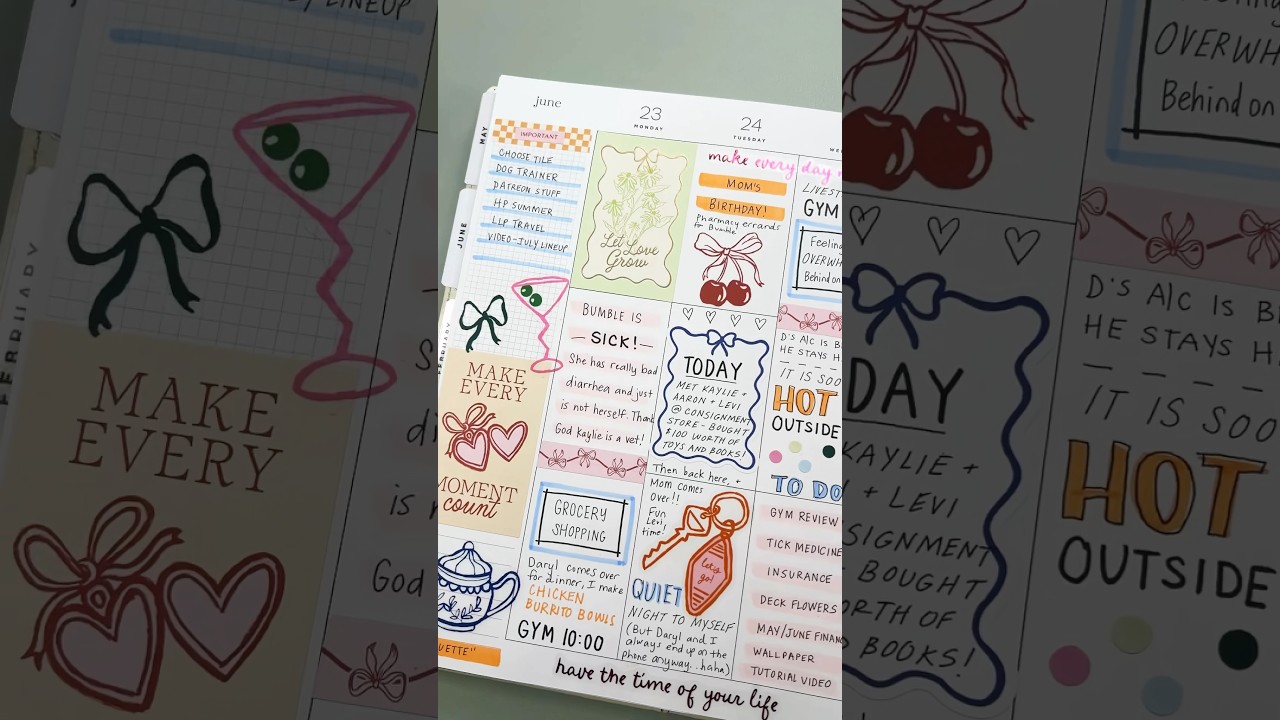 june
23
MONDAY
24
TUESDAY
MAY
JUNE
FEBRUARY
IMPORTANT
CHOOSE TILE
DOG TRAINER
PATREON STUFF
HP SUMMER
LLP TRAVEL
VIDEO-JULY LINEUP
MAKE
EVERY
MOMENT
count
UETTE"
Let Love
Grow
BUMBLE IS
— SICK! —
She has really bad
diarrhea and just
is not herself. Thank
God Kaylie is a vet!
GROCERY
SHOPPING
Daryl comes over
for dinner, I make
CHICKEN
BURRITO BOWLS
GYM 10:00
make every day
MOM'S
BIRTHDAY!
Pharmacy errands
for Bumble
TODAY
MET KAYLIE +
AARON + LEVI
@ CONSIGNMENT
STORE - BOUGHT
$100 WORTH OF
TOYS AND BOOKS!
Then back here, +
Mom comes
over!!
Fun
Levi
time!
let's
go!
QUIET
NIGHT TO MYSELF
(But Daryl and I
always end up on the
phone anyway...haha)
LIVEST
GYM
Feeling
OVERWH
Behind on
D'S A/C IS B
HE STAYS H
IT IS SOO
HOT
OUTSIDE
TO DO
GYM REVIEW
TICK MEDICINE
INSURANCE
DECK FLOWERS
MAY/JUNE FINAN
WALLPAPER
TUTORIAL VIDEO
have the time of your life
LINEUP
FEBRUARY
MAKE
EVERY
God
OVERWH
Behind on
DAY
KAYLIE +
+ LEVI
NSIGNMENT
BOUGHT
ORTH OF
BOOKS!
D'S A/C IS B
HE STAYS H
IT IS SOO
HOT
OUTSIDE